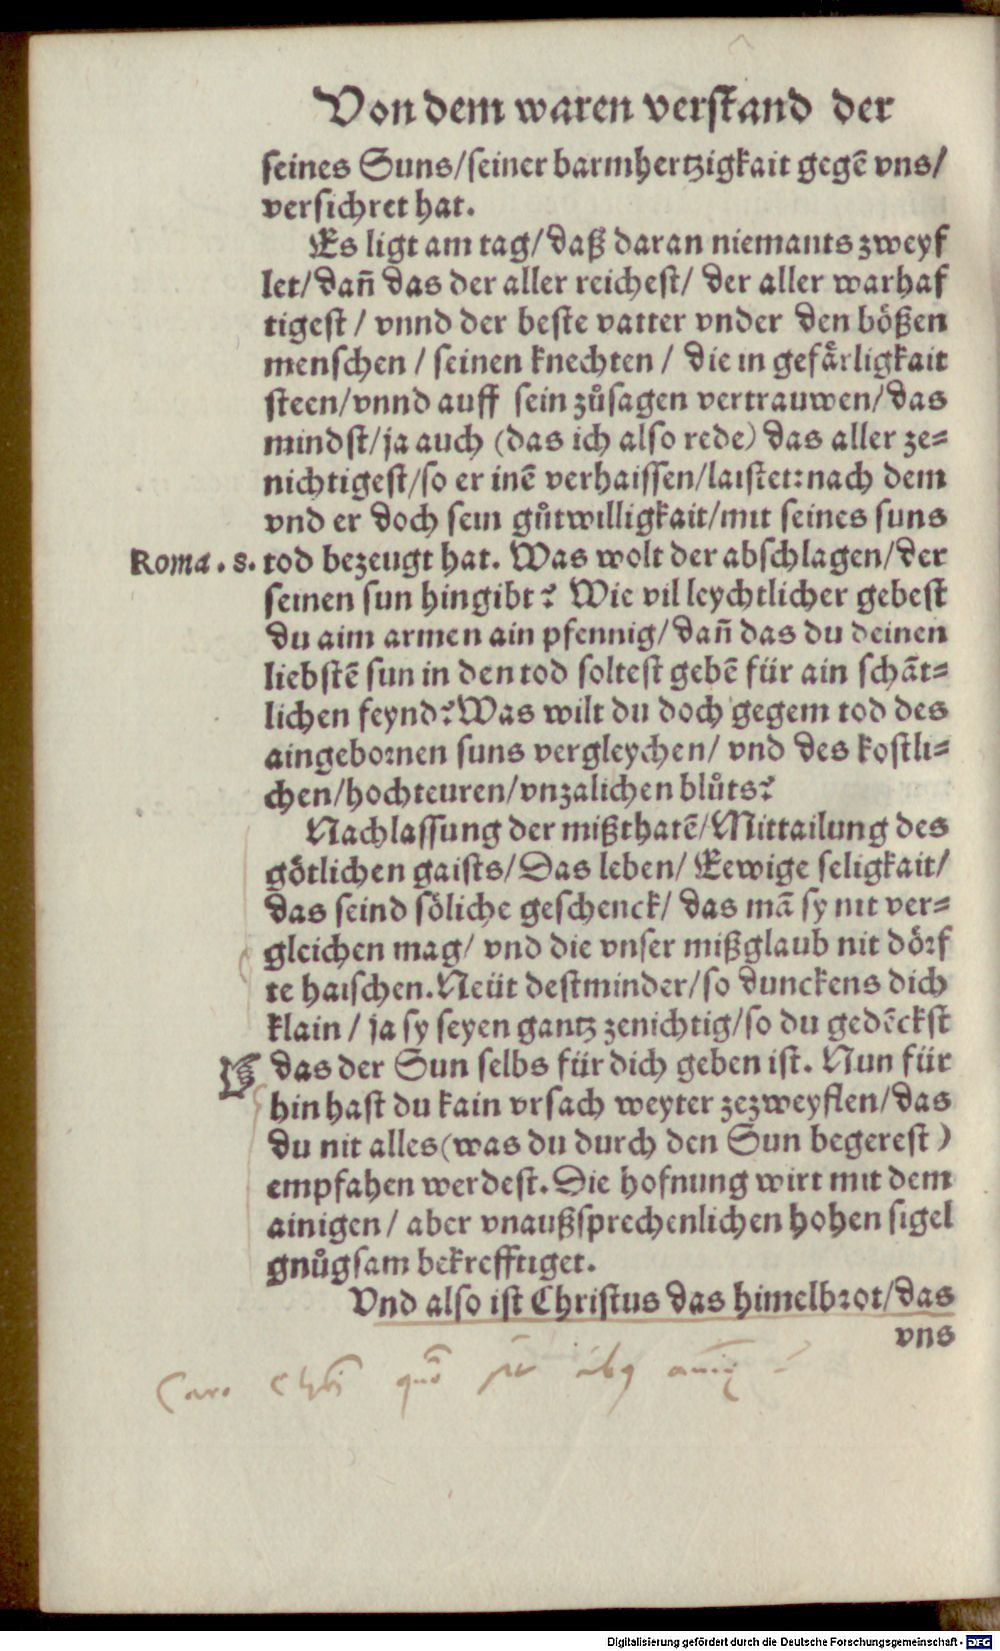 Von dem waren verstand der
seines Suns/seiner barmhertzigkait gegẽ vns/
versichret hat.
Es ligt am tag/daß daran niemants zweyf
let/dañ das der aller reichest/ der aller warhaf
tigest / vnnd der beste vatter vnder den bößen
menschen / seinen knechten / die in gefaͤrligkait
steen/vnnd auff sein zůsagen vertrauwen/das
mindst/ja auch (das ich also rede) das aller ze⸗
nichtigest/so er inẽ verhaissen/laistet:nach dem
vnd er doch sein gůtwilligkait/mit seines suns
Roma . 8. tod bezeugt hat. Was wolt der abschlagen/der
seinen sun hingibt? Wie vil leychtlicher gebest
du aim armen ain pfennig/dañ das du deinen
liebstẽ sun in den tod soltest gebẽ für ain schãt⸗
lichen feynd? Was wilt du doch gegem tod des
aingebornen suns vergleychen/ vnd des kostli⸗
chen/hochteuren/vnzalichen blůts?
Nachlassung der mißthatẽ/Mittailung des
goͤtlichen gaists/Das leben/ Eewige seligkait/
das seind soͤliche geschenck/ das mã sy nit ver⸗
gleichen mag/ vnd die vnser mißglaub nit doͤrf
te haischen. Neüt destminder/so dunckens dich
klain / ja sy seyen gantz zenichtig/so du gedẽckst
das der Sun selbs für dich geben ist. Nun für
hin hast du kain vrsach weyter zezweyflen/das
du nit alles(was du durch den Sun begerest)
empfahen werdest. Die hofnung wirt mit dem
ainigen/ aber vnaußsprechenlichen hohen sigel
gnůgsam bekrefftiget.
Vnd also ist Christus das himelbrot/das
vns
Caro Chri quõ sit cibus
Digitalisierung gefördert durch die Deutsche Forschungsgemeinschaft - DFG